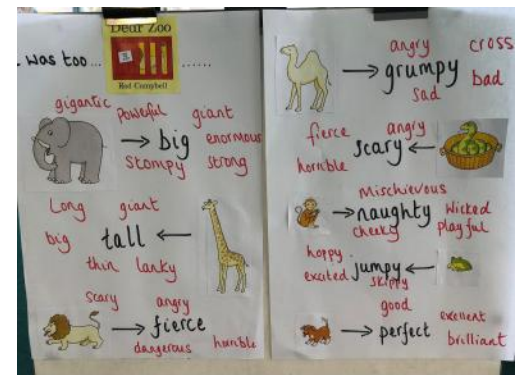 Dear Zoo
was too... ......
Rod Campbell
gigantic
Powerful
giant
big
enormous
Stompy
Strong
Long
giant
big
tall
thin
lanky
scary
angry
fierce
dangerous
horrible
angry
cross
grumpy
sad
bad
fierce
angry
scary
horrible
Mischievous
naughty
Wicked
cheeky
playful
hoppy
excited
jumpy
skippy
good
excellent
perfect
brilliant